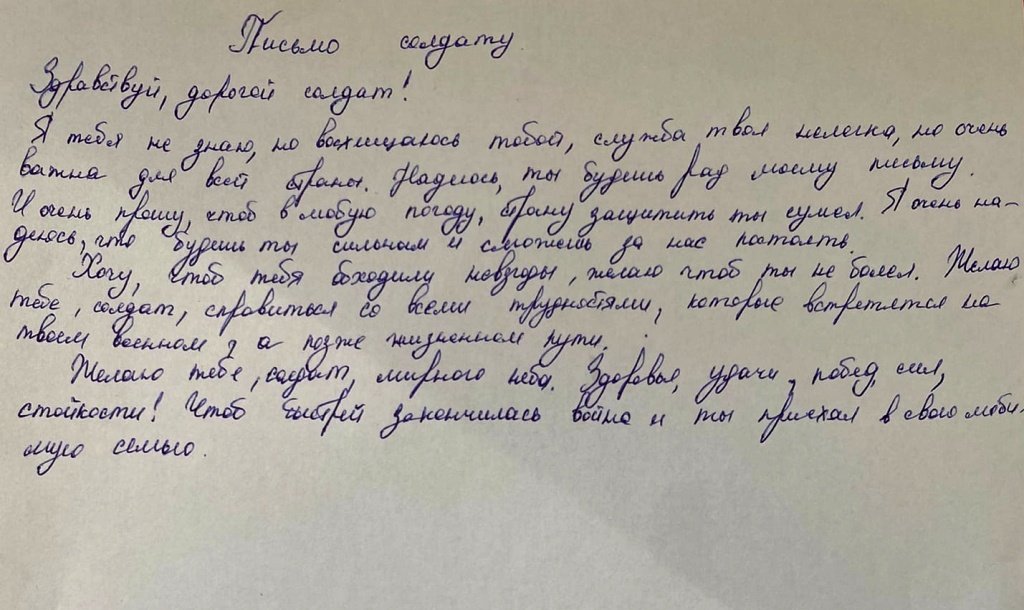 Письмо солдату
Здравствуй, дорогой солдат!
Я тебя не знаю, но восхищаюсь тобой, служба твоя нелегка, но очень
важна для всей страны. Надеюсь, ты будешь рад моему письму.
И очень прошу, чтоб в любую погоду, страну защитить ты сумел. Я очень на-
деюсь, что будешь ты сильным и сможешь за нас постоять.
Хочу, чтоб тебя обходили невзгоды, желаю чтоб ты не болел. Желаю
тебе, солдат, справиться со всеми трудностями, которые встретятся на
твоем военном, а позже жизненном пути.
Желаю тебе, солдат, мирного неба. Здоровья, удачи, побед, сил,
стойкости! Чтоб быстрей закончилась война и ты приехал в свою люби-
мую семью.